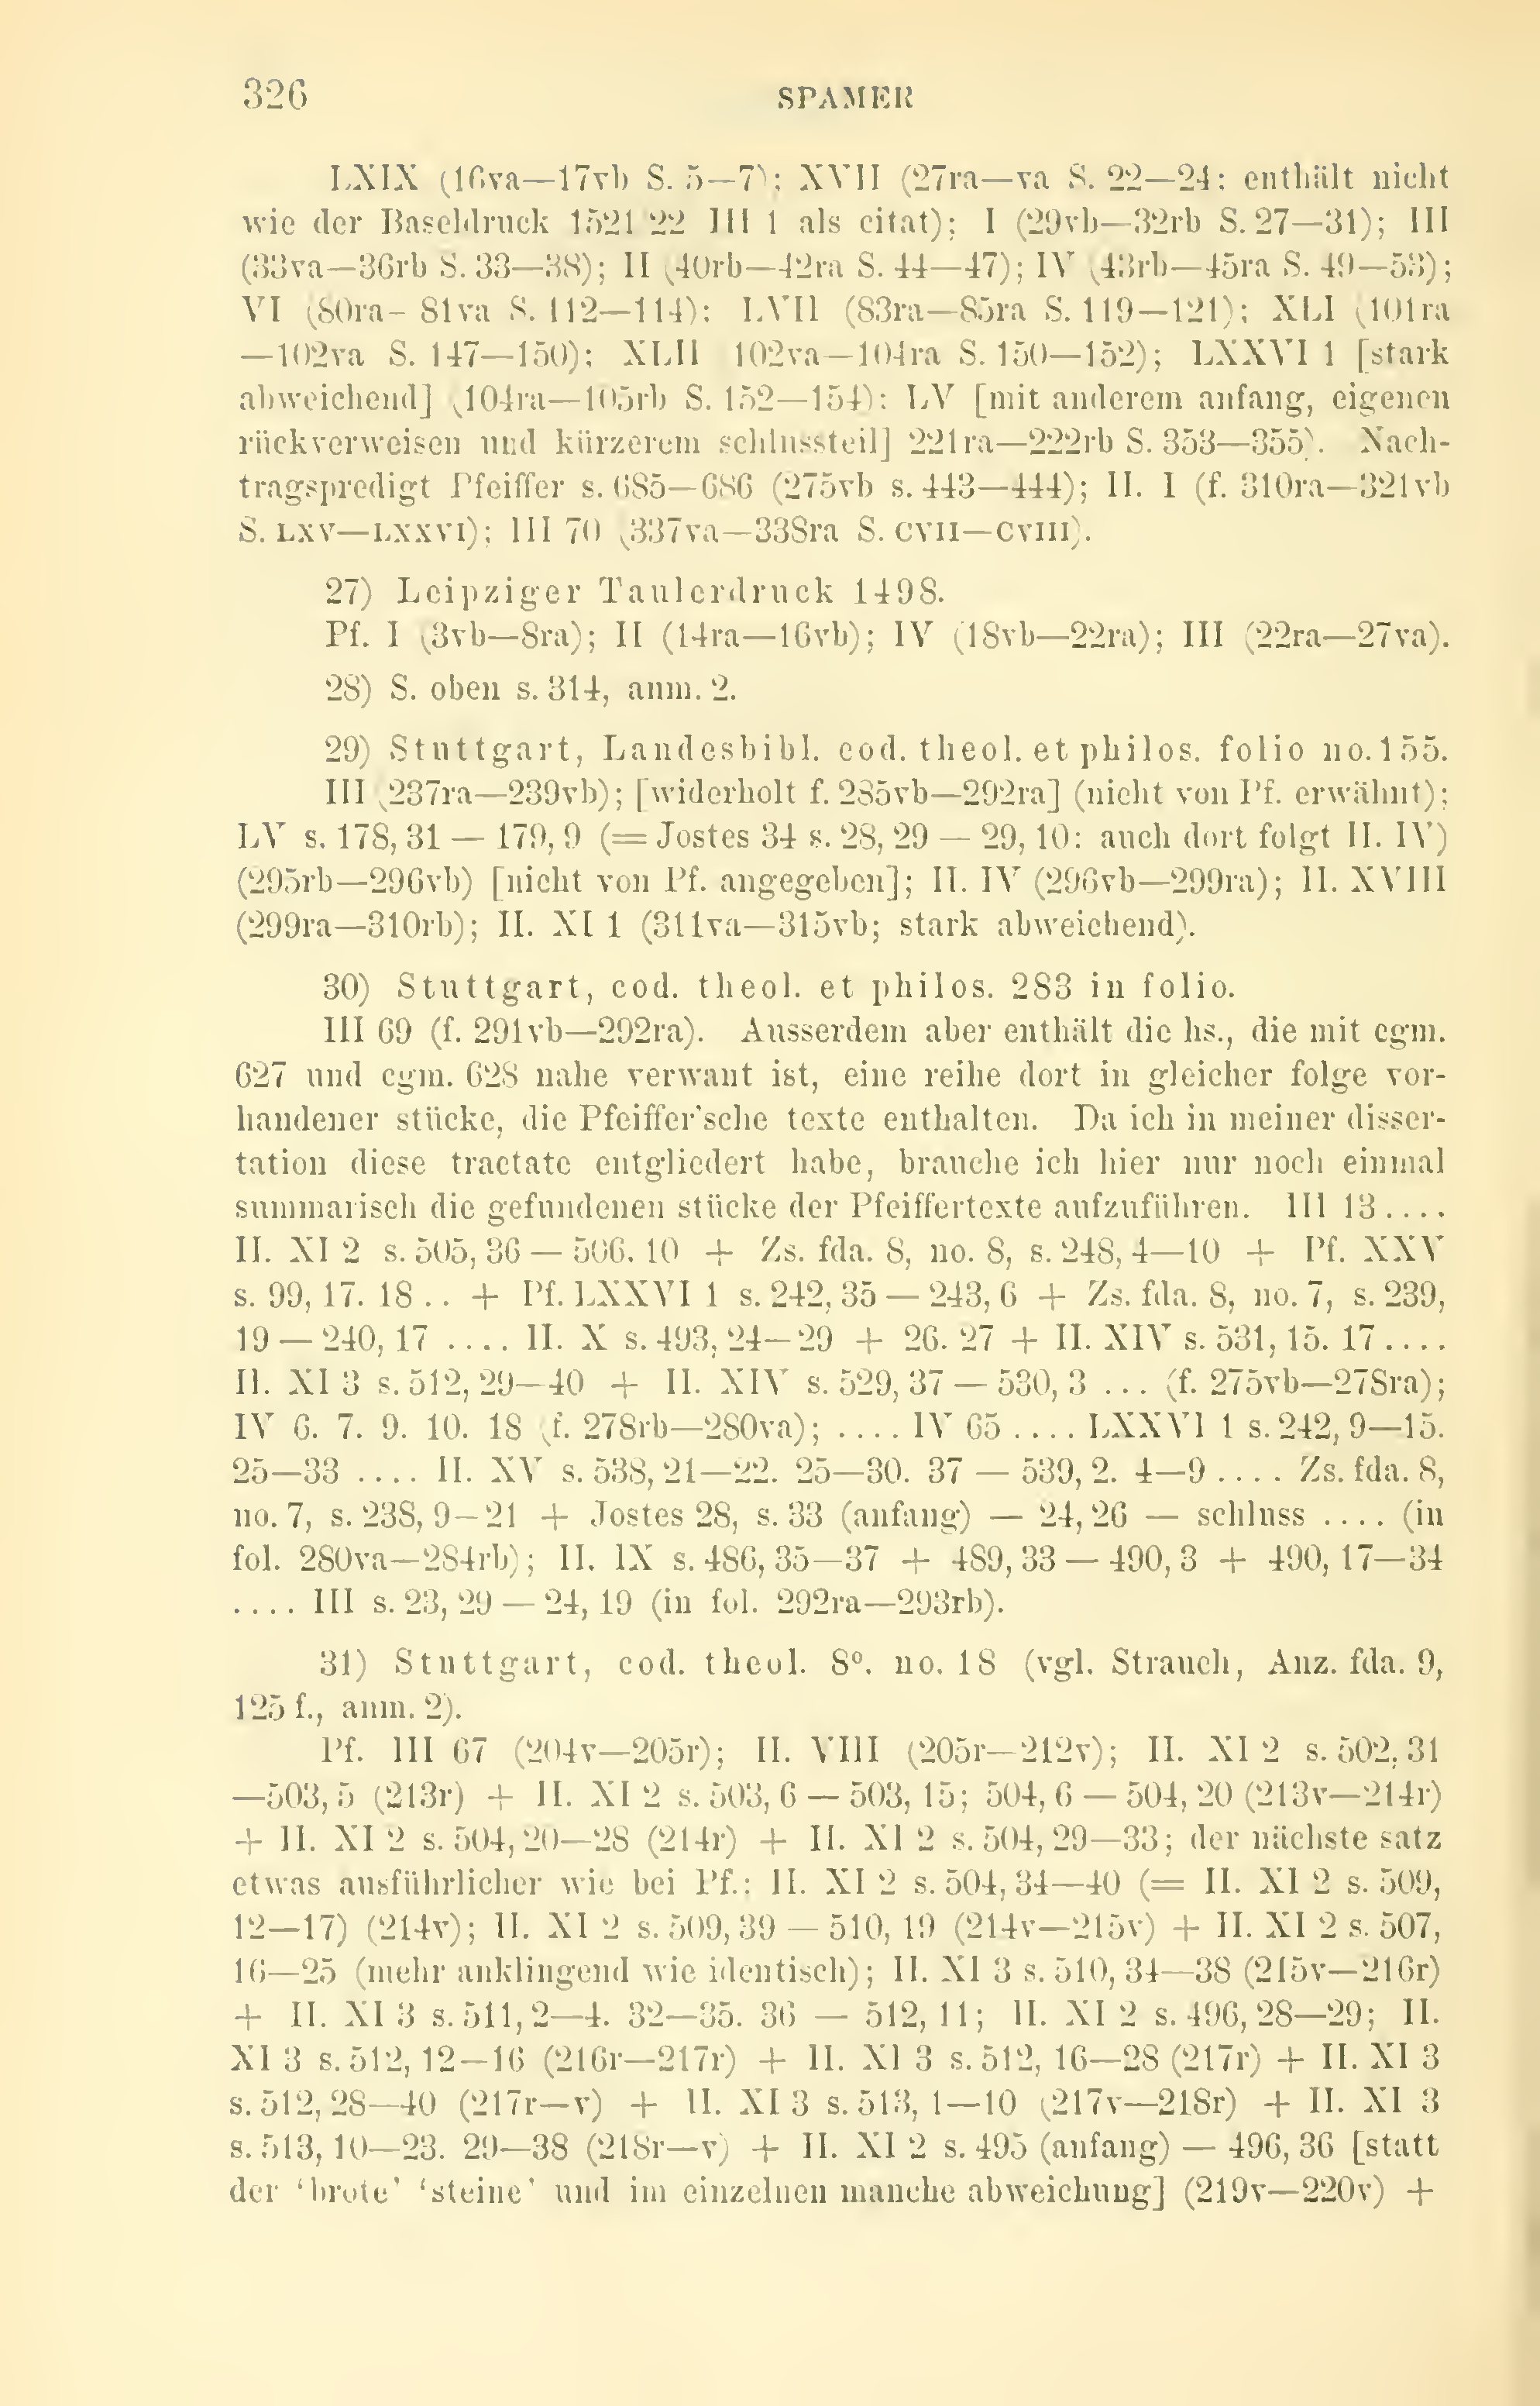 326 SPAMER
LXIX (16va—17vb S. 5—7); XVII (27ra—va S. 22—24: enthält nicht
wie der Baseldruck 1521 22 III 1 als citat); I (29vb—32rb S. 27—31); III
(33va—36rb S. 33—38); II (40rb—42ra S. 44—47); IV (43rb—45ra S. 49—53);
VI (80ra—81va S. 112—114): LVII (83ra—85ra S. 119—121); XLI (101ra
—102va S. 147—150); XLII 102va—104ra S. 150—152); LXXVI 1 [stark
abweichend] (104ra—105rb S. 152—154): LV [mit anderem anfang, eigenen
rückverweisen und kürzerem schlussteil] 221ra—222rb S. 353—355). Nach-
tragspredigt Pfeiffer s. 685—686 (275vb s. 443—444); II. I (f. 310ra—321vb
S. LXV—LXXVI); III 70 (337va—338ra S. CVII—CVIII).
27) Leipziger Taulerdruck 1498.
Pf. I (3vb—8ra); II (14ra—16vb); IV (18vb—22ra); III (22ra—27va).
28) S. oben s. 314, anm. 2.
29) Stuttgart, Landesbibl. cod. theol. et philos. folio no. 155.
III (237ra—239vb); [widerholt f. 285vb—292ra] (nicht von Pf. erwähnt);
LV s. 178, 31 — 179, 9 (= Jostes 34 s. 28, 29 — 29, 10: auch dort folgt II. IV)
(295rb—296vb) [nicht von Pf. angegeben]; II. IV (296vb—299ra); II. XVIII
(299ra—310rb); II. XI 1 (311va—315vb; stark abweichend).
30) Stuttgart, cod. theol. et philos. 283 in folio.
III 69 (f. 291vb—292ra). Ausserdem aber enthält die hs., die mit cgm.
627 und cgm. 628 nahe verwant ist, eine reihe dort in gleicher folge vor-
handener stücke, die Pfeiffer'sche texte enthalten. Da ich in meiner disser-
tation diese tractate entgliedert habe, brauche ich hier nur noch einmal
summarisch die gefundenen stücke der Pfeiffertexte aufzuführen. III 13 . . . .
II. XI 2 s. 505, 36 — 506. 10 + Zs. fda. 8, no. 8, s. 248, 4—10 + Pf. XXV
s. 99, 17. 18 . . + Pf. LXXVI 1 s. 242, 35 — 243, 6 + Zs. fda. 8, no. 7, s. 239,
19 — 240, 17 . . . . II. X s. 493, 24—29 + 26. 27 + II. XIV s. 531, 15. 17 . . . .
II. XI 3 s. 512, 29—40 + II. XIV s. 529, 37 — 530, 3 . . . (f. 275vb—278ra);
IV 6. 7. 9. 10. 18 (f. 278rb—280va); . . . . IV 65 . . . . LXXVI 1 s. 242, 9—15.
25—33 . . . . II. XV s. 538, 21—22. 25—30. 37 — 539, 2. 4—9 . . . . Zs. fda. 8,
no. 7, s. 238, 9—21 + Jostes 28, s. 33 (anfang) — 24, 26 — schluss . . . . (in
fol. 280va—284rb); II. IX s. 486, 35—37 + 489, 33 — 490, 3 + 490, 17—34
. . . . III s. 23, 29 — 24, 19 (in fol. 292ra—293rb).
31) Stuttgart, cod. theol. 8°. no. 18 (vgl. Strauch, Anz. fda. 9,
125 f., anm. 2).
Pf. III 67 (204v—205r); II. VIII (205r—212v); II. XI 2 s. 502, 31
—503, 5 (213r) + II. XI 2 s. 503, 6 — 503, 15; 504, 6 — 504, 20 (213v—214r)
+ II. XI 2 s. 504, 20—28 (214r) + II. XI 2 s. 504, 29—33; der nächste satz
etwas ausführlicher wie bei Pf.: II. XI 2 s. 504, 34—40 (= II. XI 2 s. 509,
12—17) (214v); II. XI 2 s. 509, 39 — 510, 19 (214v—215v) + II. XI 2 s. 507,
16—25 (mehr anklingend wie identisch); II. XI 3 s. 510, 34—38 (215v—216r)
+ II. XI 3 s. 511, 2—4. 32—35. 36 — 512, 11; II. XI 2 s. 496, 28—29; II.
XI 3 s. 512, 12—16 (216r—217r) + II. XI 3 s. 512, 16—28 (217r) + II. XI 3
s. 512, 28—40 (217r—v) + II. XI 3 s. 513, 1—10 (217v—218r) + II. XI 3
s. 513, 10—23. 29—38 (218r—v) + II. XI 2 s. 495 (anfang) — 496, 36 [statt
der 'brote' 'steine' und im einzelnen manche abweichung] (219v—220v) +